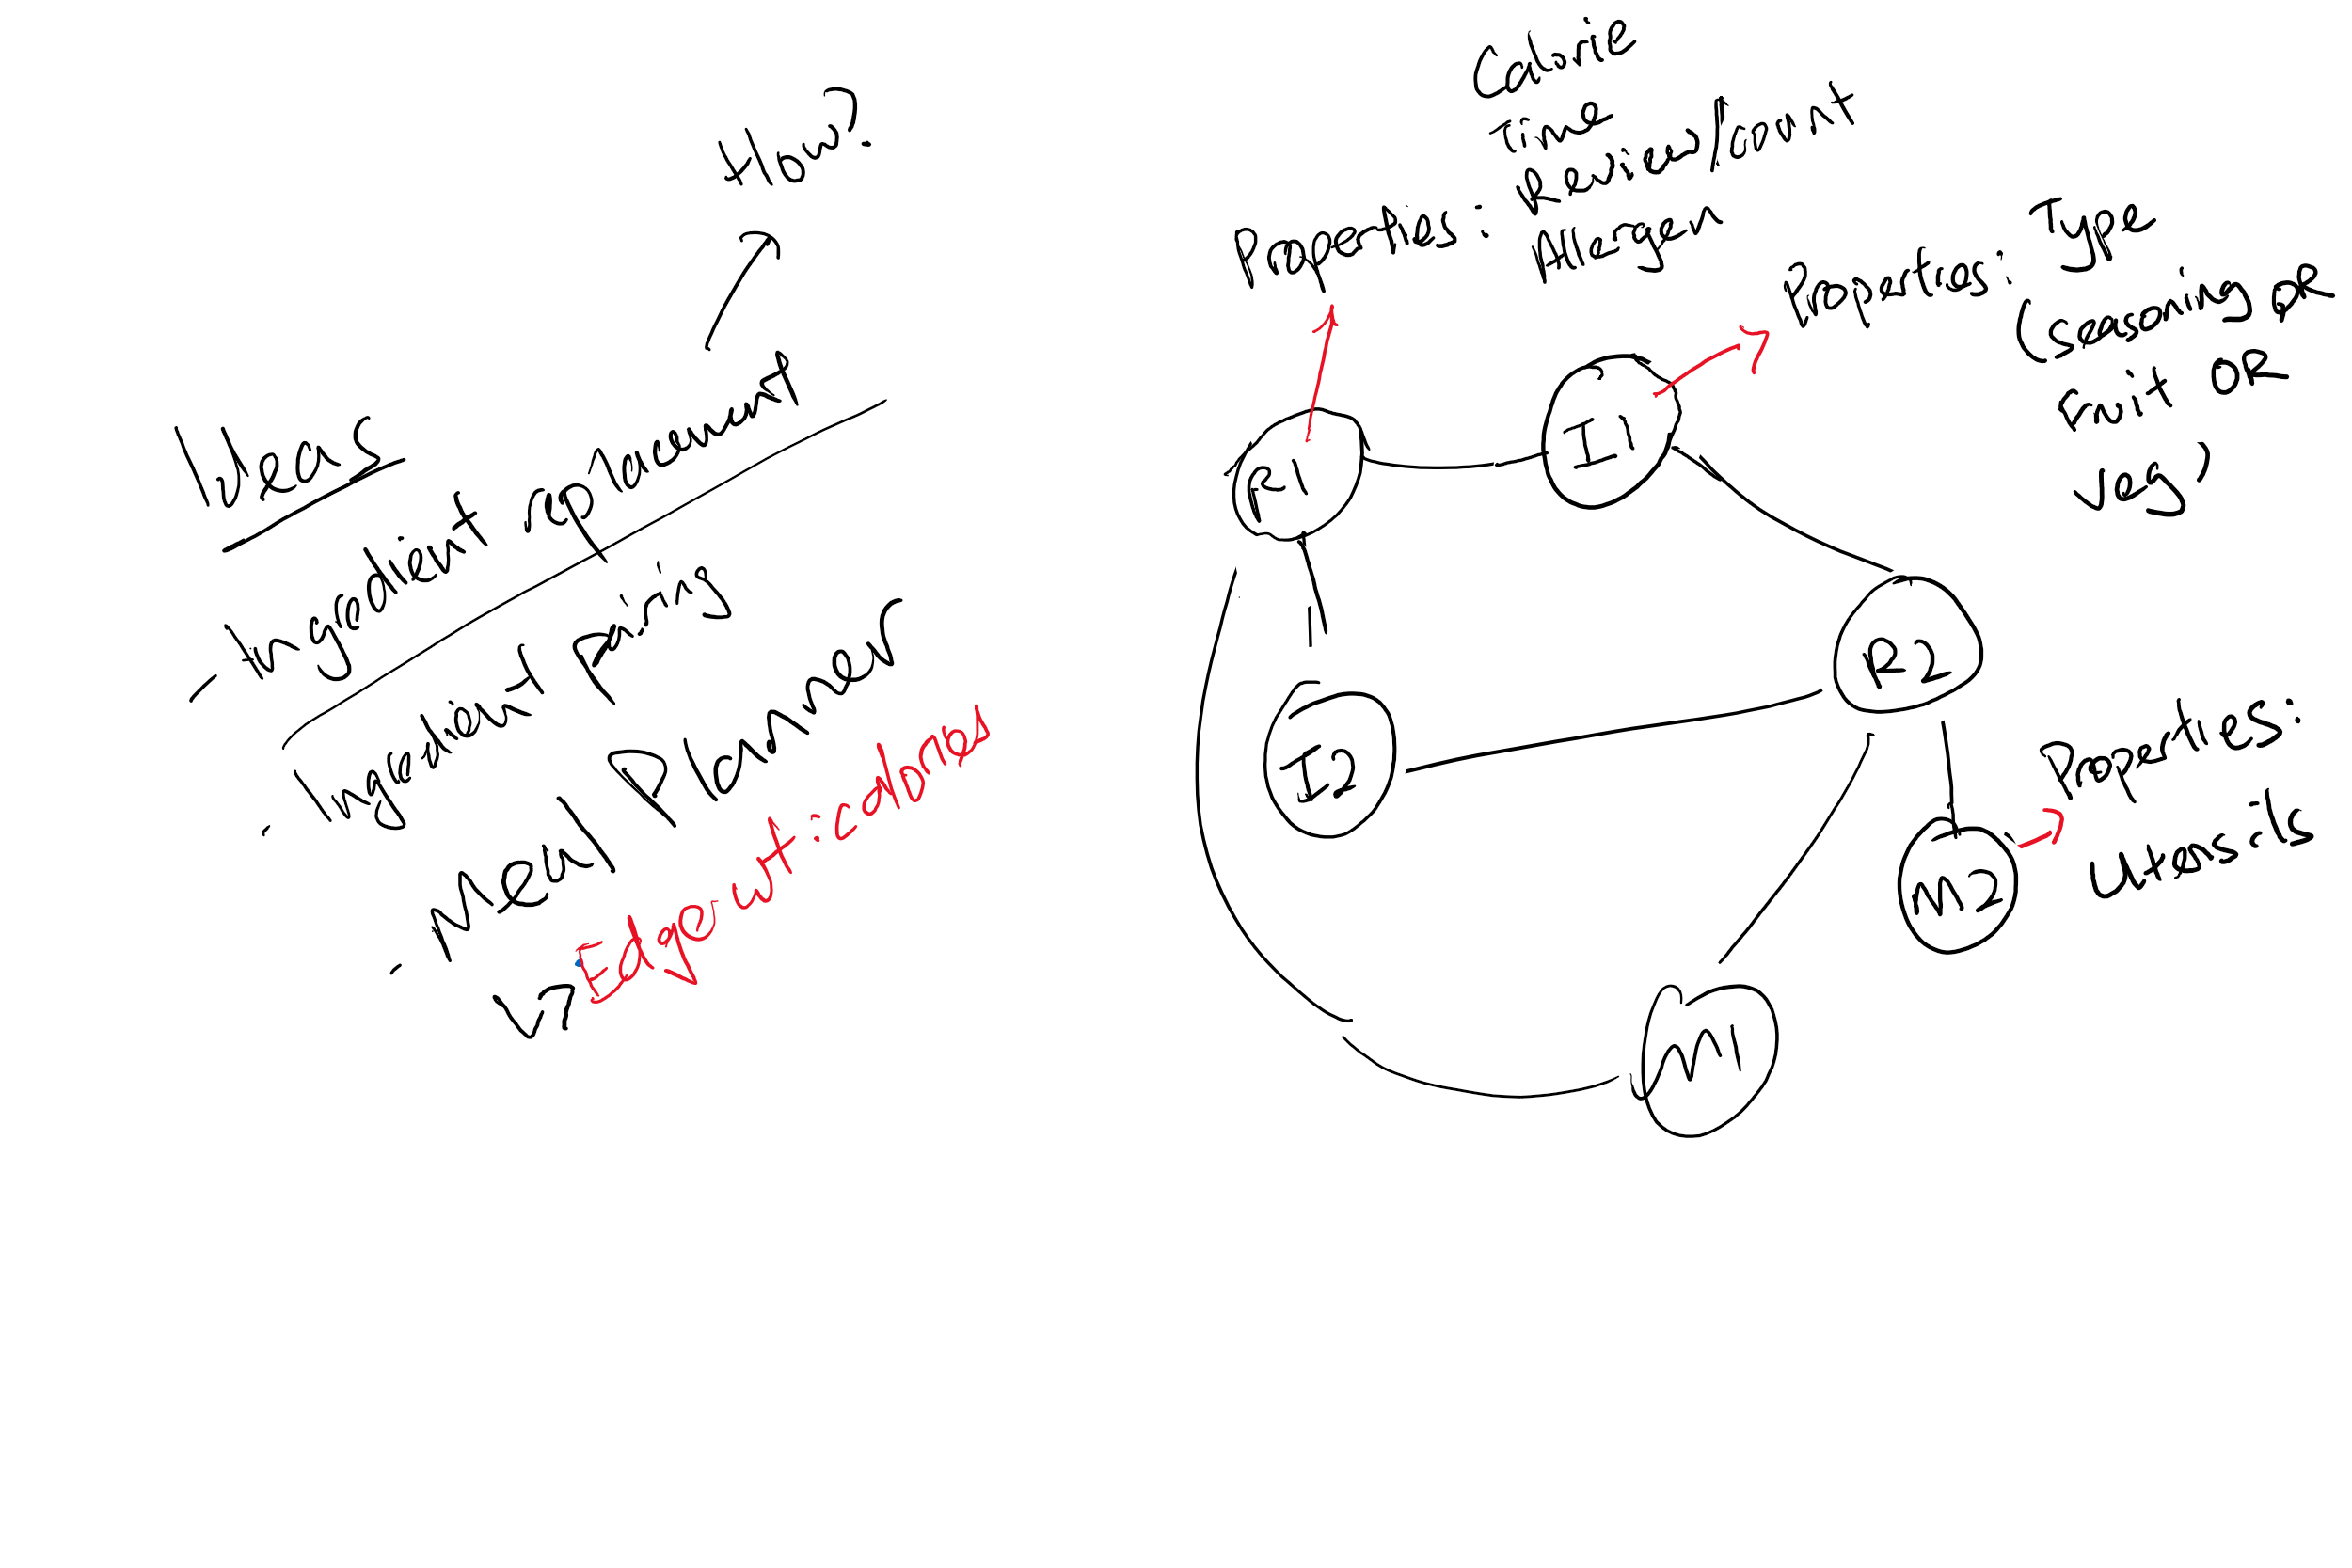 Ideas
- Ingredient replacement
How?
- Ingredient pairing
- Meal Planner
Edge wt: calories
Properties: Calorie
Time
Review/count
Allergen
Properties: Type
(seasoning OR
fruit OR
veg)
R1
I1
R2
I2
Properties:
M2
M1